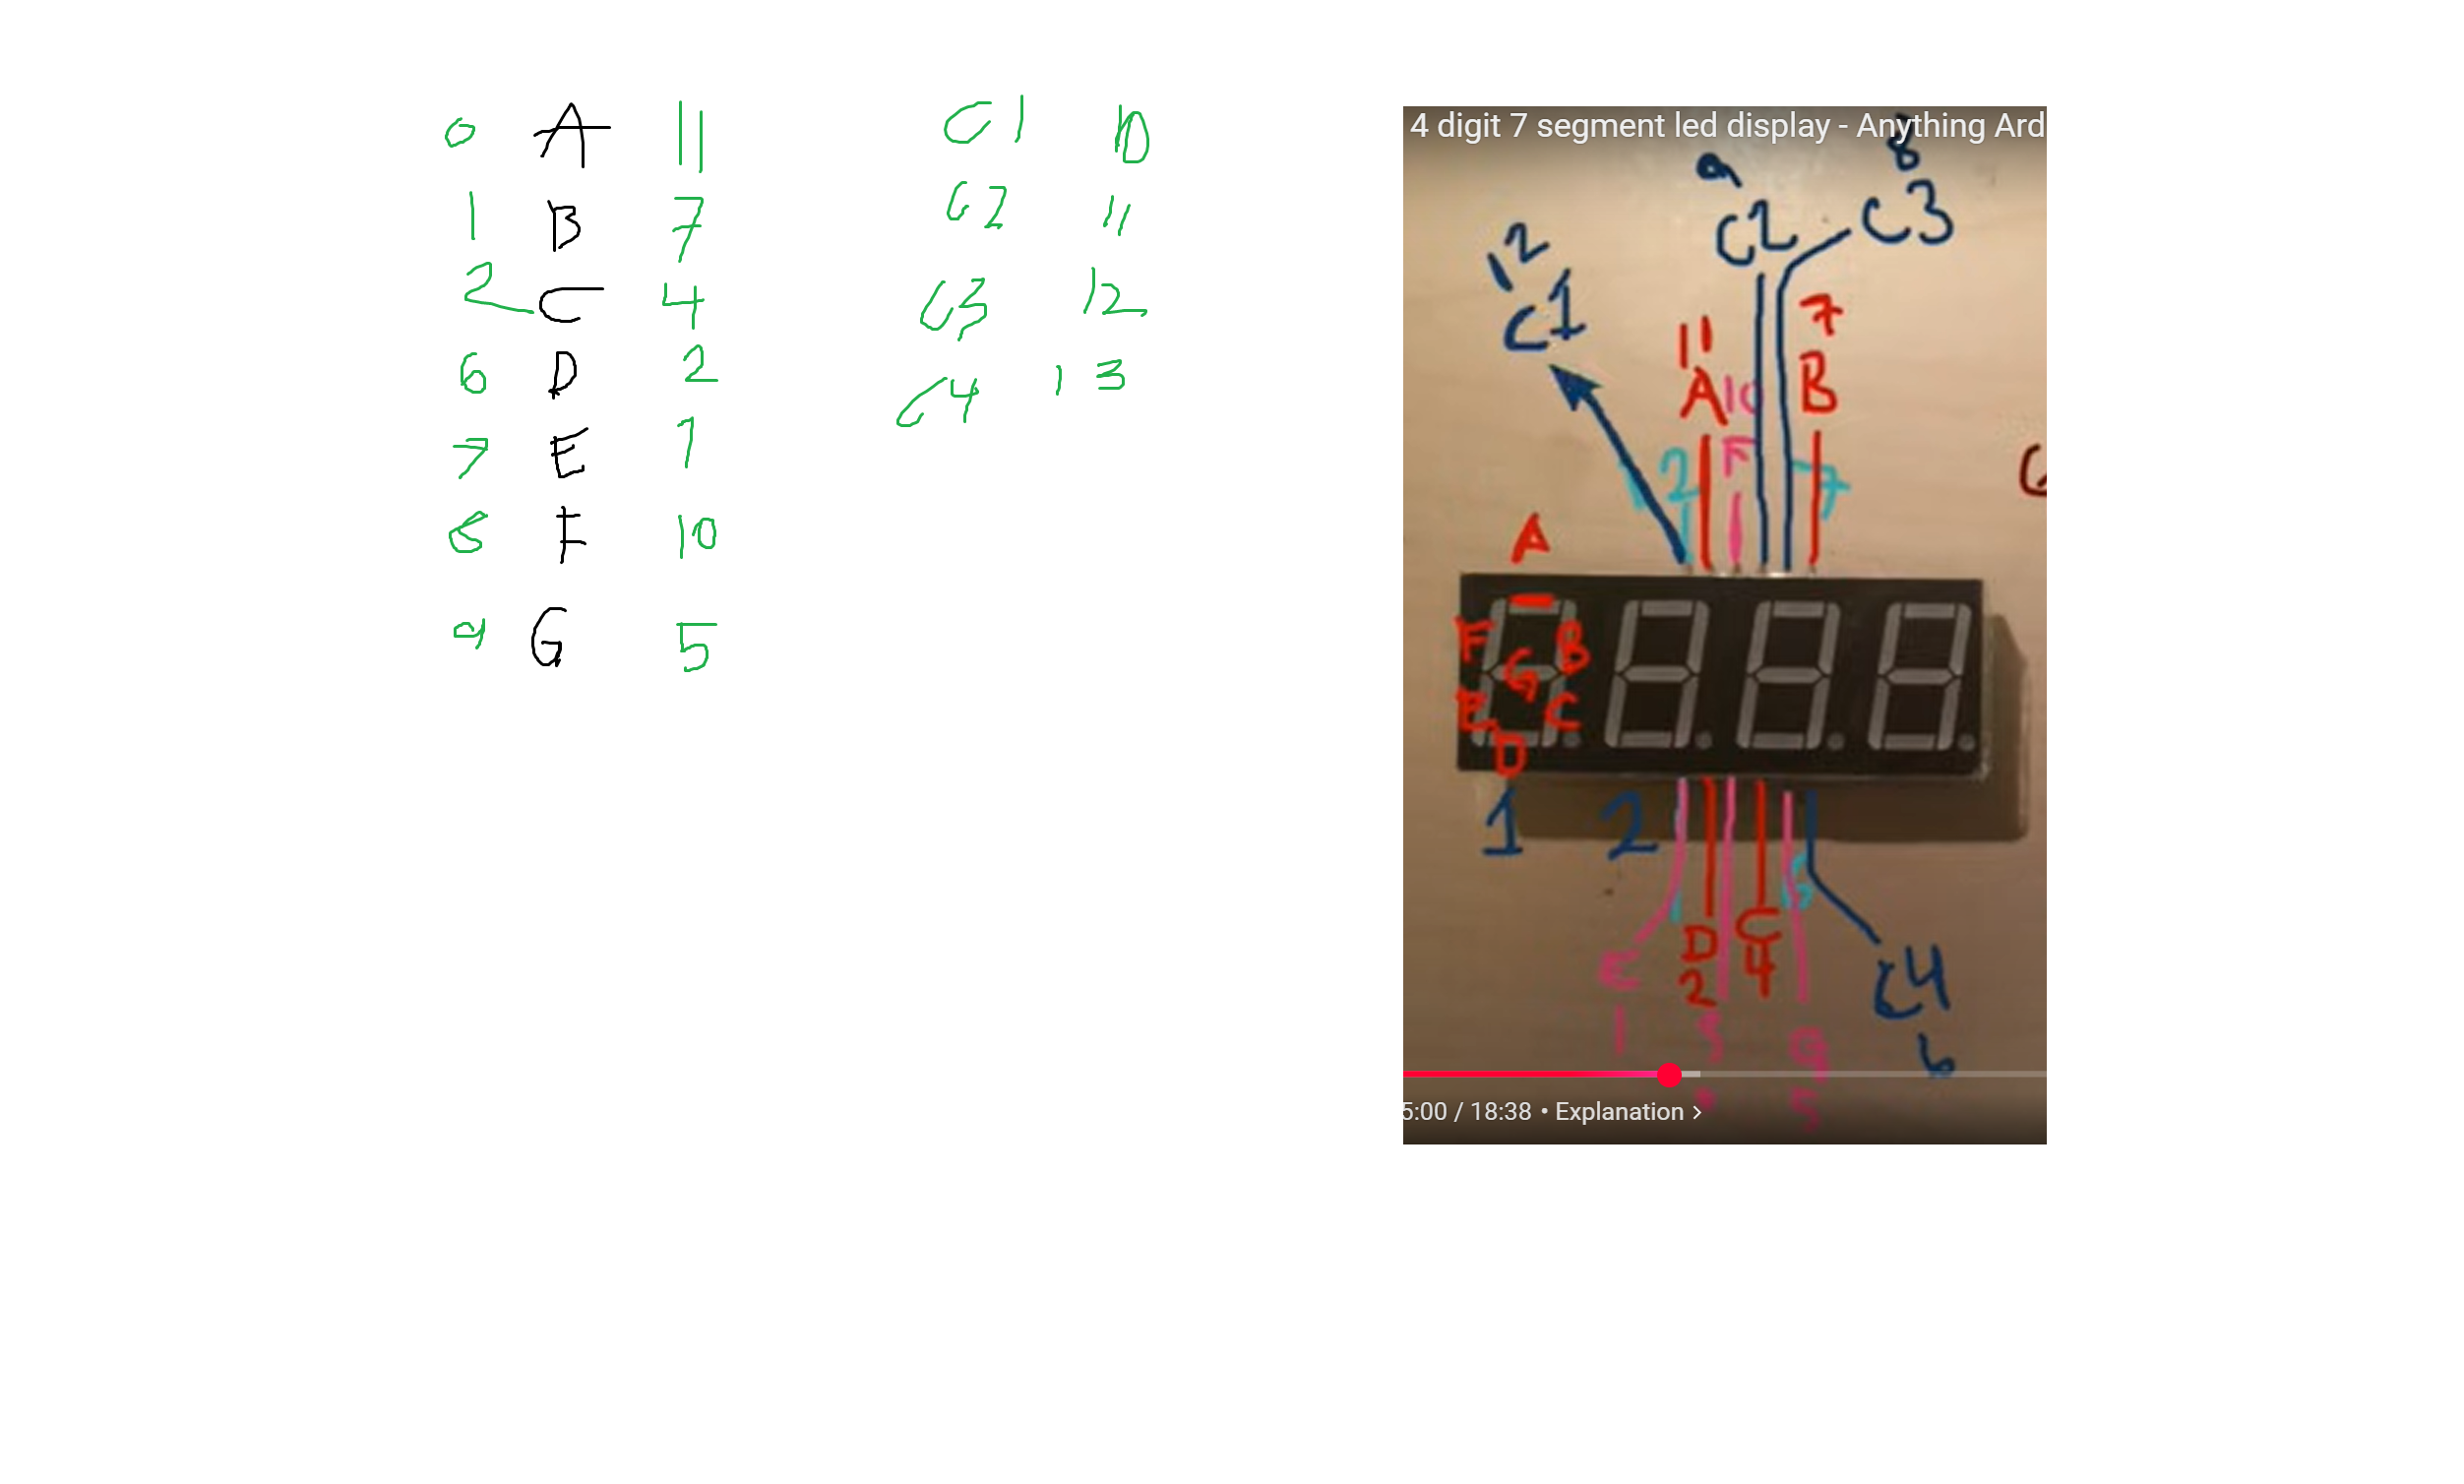 0 A 11
1 B 7
2 C 4
6 D 2
7 E 1
8 F 10
9 G 5
C1 10
C2 11
C3 12
C4 13
4 digit 7 segment led display - Anything Ard
9
8
C2
C3
12
C1
11
7
A
10
B
2
F
7
A
F
B
G
E
C
D
1
2
D
C
E
2
4
C4
1
3
G
6
5
5:00 / 18:38 • Explanation >